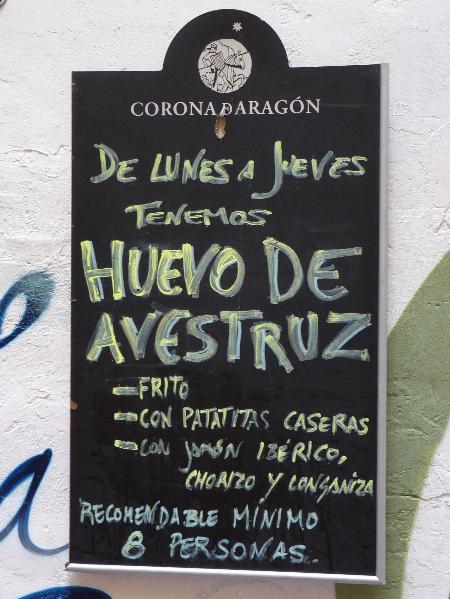 CORONA D ARAGÓN
DE LUNES A JUEVES
TENEMOS
HUEVO DE
AVESTRUZ
- FRITO
- CON PATATITAS CASERAS
- CON JAMÓN IBÉRICO,
CHORIZO Y LONGANIZA
RECOMENDABLE MÍNIMO
8 PERSONAS..